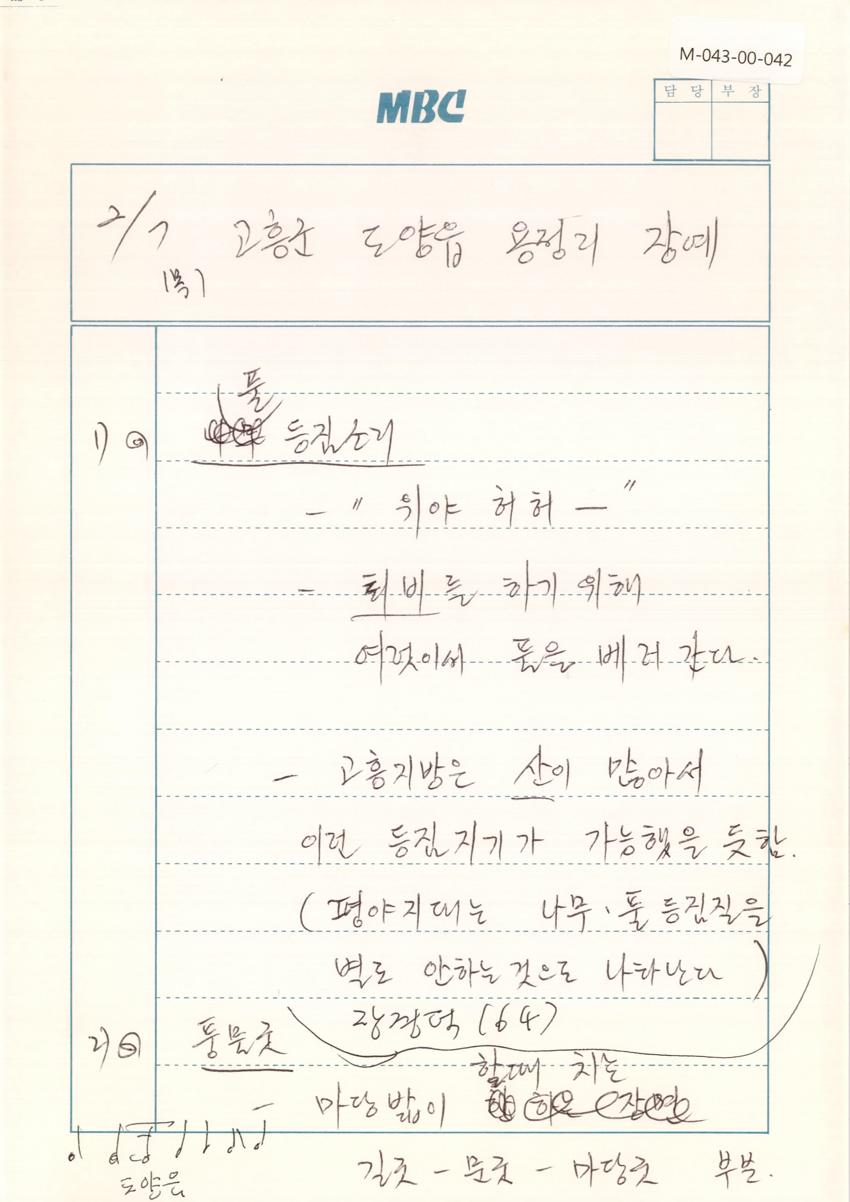 M-043-00-042
MBC
담 당 부 장
2/7 고흥군 도양읍 용정리 장예
(목)
풀
1) 등짐소리
- " 위야 허허 — "
- 퇴비를 하기 위해
여럿이서 풀을 베러 간다.
- 고흥지방은 산이 많아서
이런 등짐지기가 가능했을 듯함.
( 평야지대는 나무、풀 등짐질을
별로 안하는 것으로 나타난다 )
장경덕 (64)
2) 풍물굿
할때 치는
- 마당밟이
길굿 - 문굿 - 마당굿 부분.
도양읍